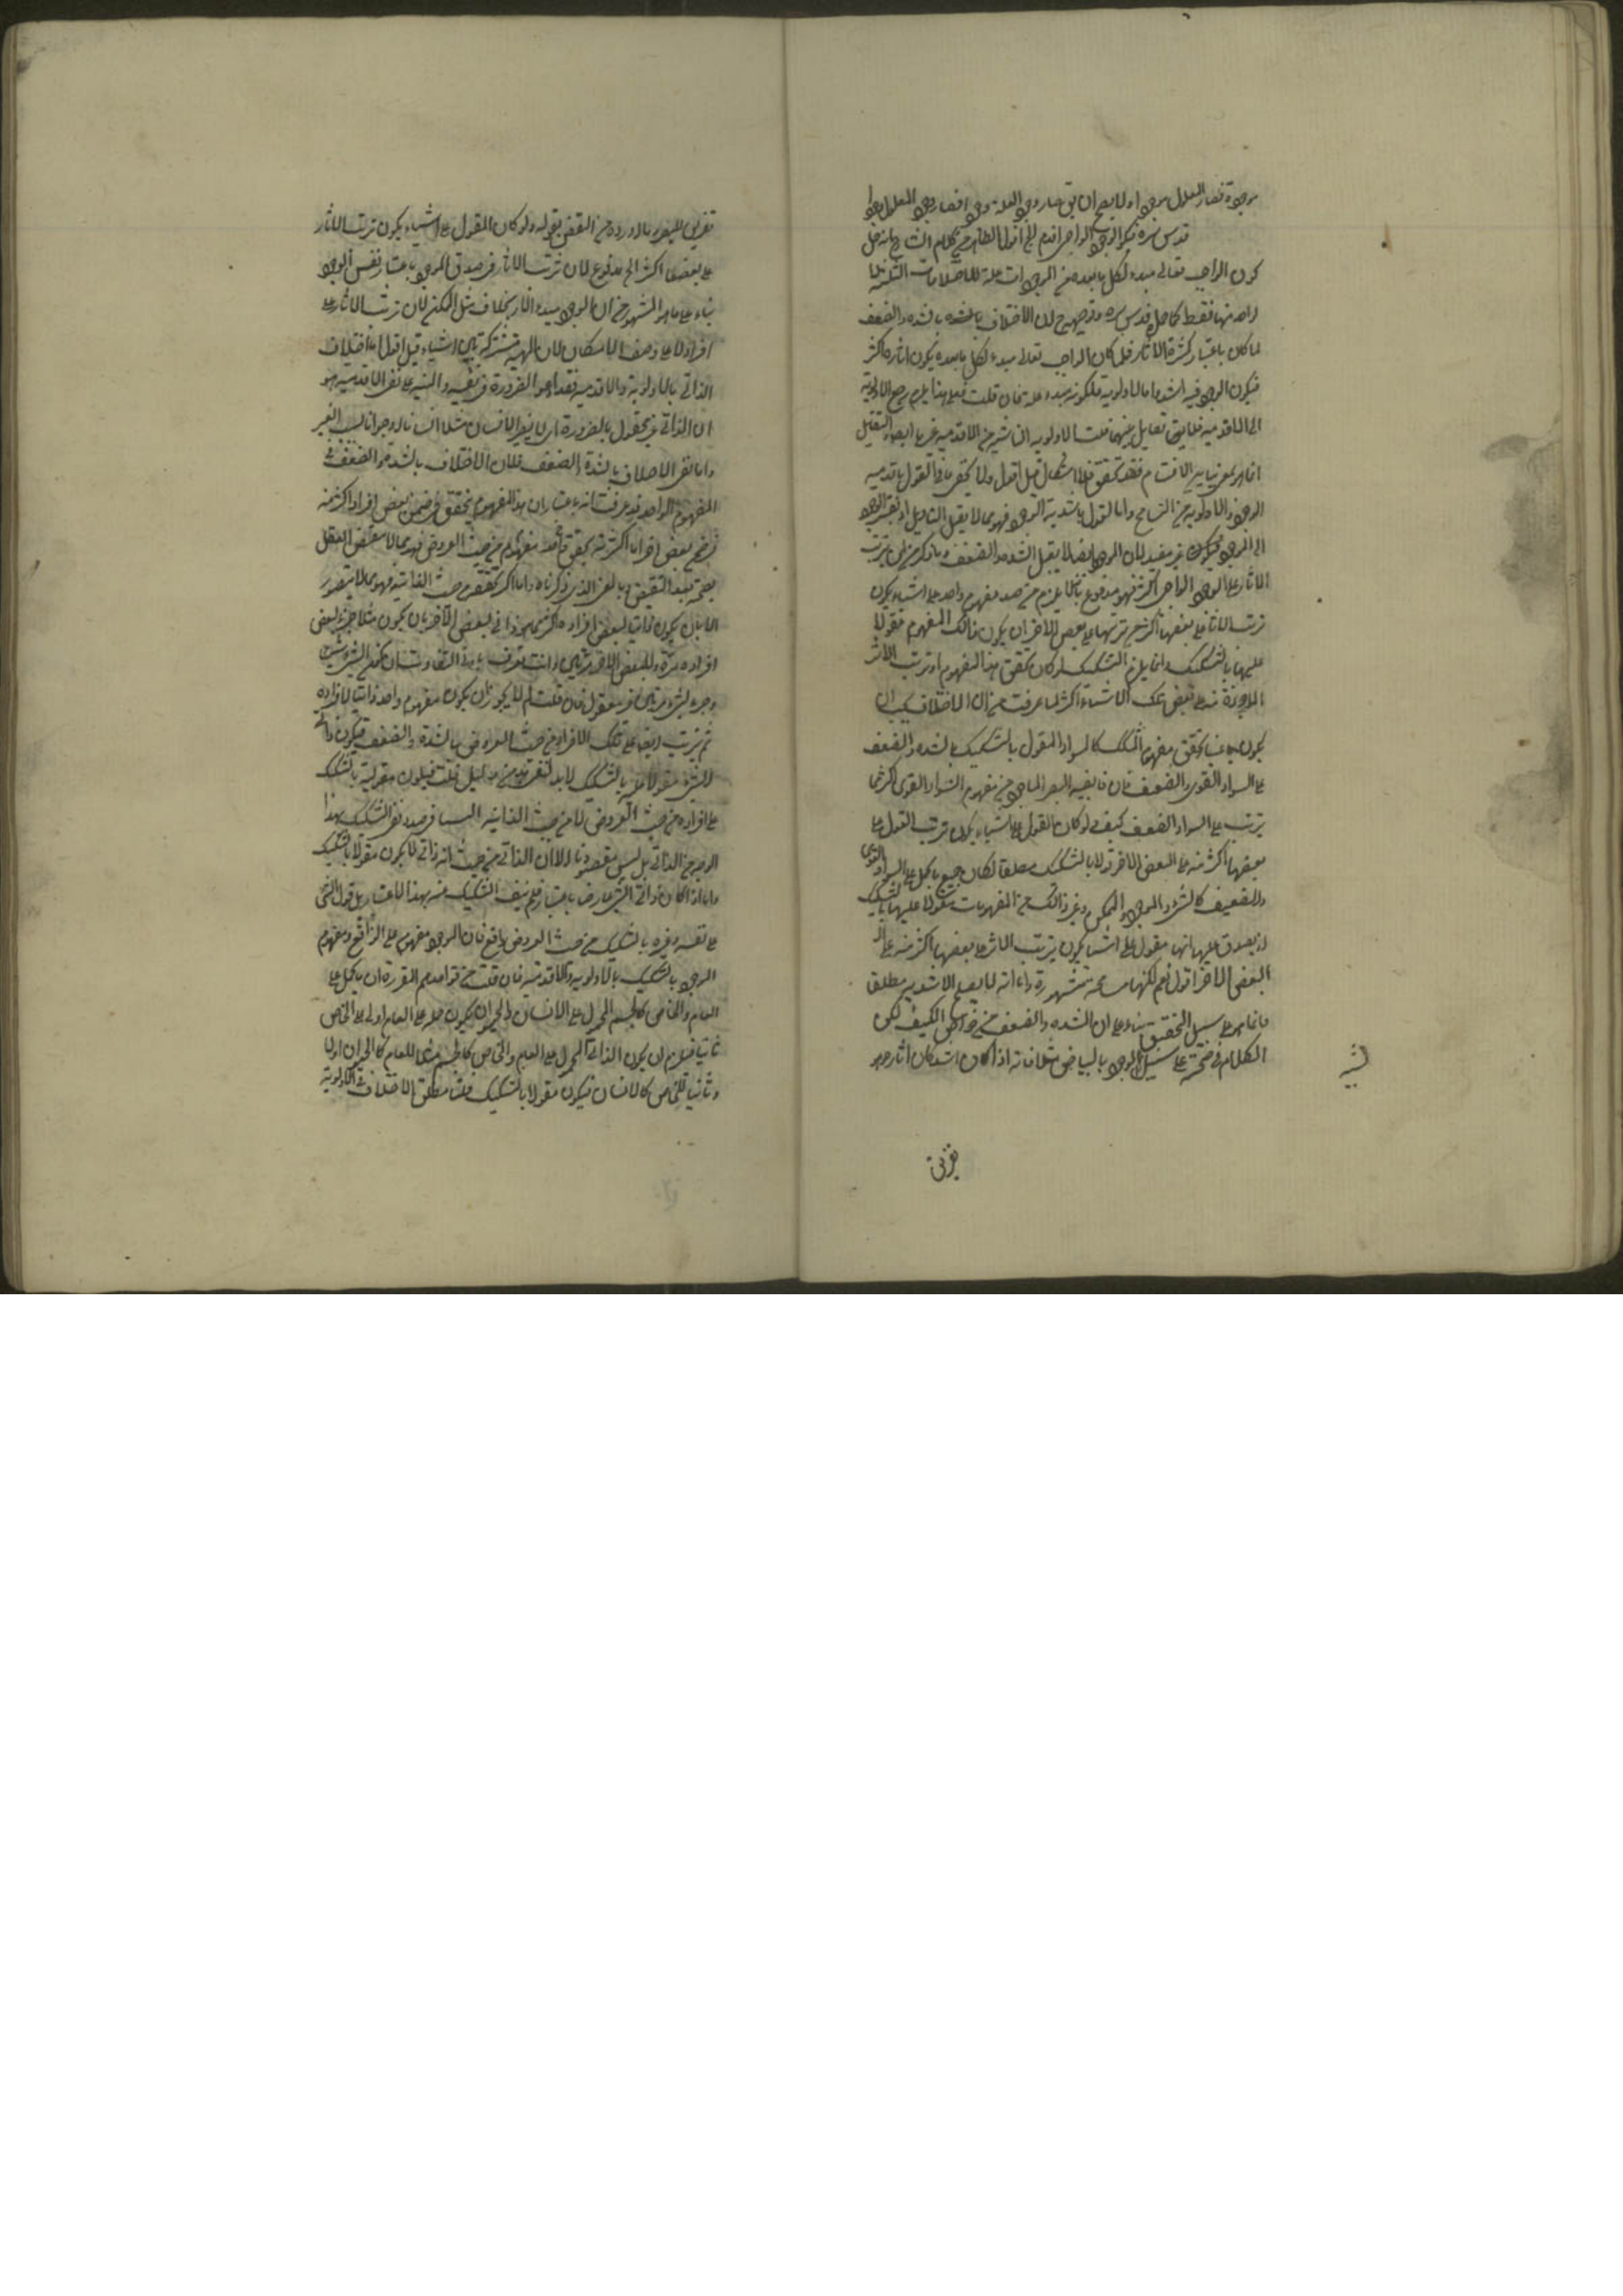 موجودة فصار المعلول موجودا ولا يصح ان يق صار وجود العلة وجودا فصار وجود المعلول وجودا
قدس سره فيكون الوجود الواجبى اقدم الخ اقول الظاهر من كلام الشارح انه جعل
كون الواجب تعالى مبدء لكل ما بعده من الموجودات علة للاختلافات الثلثة لا
لواحد منها فقط كما حمله قدس سره وتوجيهه ح ان الاختلاف بالشدة والضعف
لما كان باعتبار كثرة الاثار فلما كان الواجب تعالى مبدء لكل ما بعده يكون اثاره اكثر
فيكون الوجود فيه اشد واما الاولوية فلكونه مبدء وعلة فان قلت فعلى هذا يلزم رجوع الاولوية
الى الاقدمية فلا يبقى تقابل بينهما قلت الاولوية الناشية من الاقدمية غيرها
انما هو بمعنى تباين الاقسام فقد تحقق فلا اشكال قيل اقول ولا يخفى ما في القول باقدمية
الوجود والاولوية من التسامح واما القول باشدية الوجود فهو مما لا يقبل التاويل
الى الموجود غير مفيد لان الموجود ايضا لا يقبل الشدة والضعف وما ذكر من ان ترتب
الاثار على الوجود الواجبى اكثر فهو مدفوع بانه لا يلزم من صدق مفهوم واحد على اشياء يكون
ترتب الاثار على بعضها اكثر من ترتبها على بعض الاخر ان يكون ذلك المفهوم مقولا
عليها بالتشكيك وانما يلزم التشكيك لو كان تحقق هذا المفهوم او ترتب الاثر
الماخوذة منه على بعض تلك الاشياء اكثر لما عرفت من ان الاختلاف يجب ان
يكون باعتبار تحقق مفهوم المشكك كالسواد المقول بالتشكيك بالشدة والضعف
على السواد القوى والضعيف فان قابضية البصر الماخوذ من مفهوم السواد القوى اكثر مما
يترتب على السواد الضعيف كيف ولو كان المقول على اشياء يكون ترتب القول على
بعضها اكثر منه على البعض الاخر مقولا بالتشكيك مطلقا لكان جميع ما يحمل على السواد القوى
والضعيف كالشىء والموجود والممكن وغير ذلك من المفهومات مقولا عليهما بالتشكيك
اذ يصدق عليها انها مقول على اشياء يكون يترتب الاثر على بعضها اكثر منه على
البعض الاخر اقول نعم لكنها مسامحة مشهورة واما انه لا يصح الاشدية مطلقا
فانما هو على سبيل التحقيق بناء على ان الشدة والضعف من خواص الكيف لكن
الكلام في صحته على سبيل تشبيه الوجود بالبياض مثلا فانه اذا كان اشد كان اثاره
تشبيه
تفريق
تفريق للبصر وما اورده من النقض بقوله ولو كان المقول على اشياء يكون ترتب الاثار
على بعضها اكثر الخ مدفوع لان ترتب الاثار في صدق الموجود باعتبار نفس الوجود
بناء على ما هو المشهور من ان الوجود مبدء الاثار بخلاف مثل الممكن لان ترتب الاثار على
افراده لا على وصف الامكان لان الماهية مشتركة بين اشياء قيل اقول اما اختلاف
الذاتى بالاولوية والاقدمية فقد ادعوا الضرورة في نفيه والتنبيه على نفى الاقدمية هو
ان الذاتى غير معقول بالضرورة اى لا يصير الانسان مثلا انسانا ووجوانا لسبب الغير
واما نفى الاختلاف بالشدة والضعف فلان الاختلاف بالشدة والضعف في
المفهوم الواحد قد عرفت انه باعتبار ان هذا المفهوم يتحقق في ضمن بعض افراده اكثر منه
في ضمن بعض اخر اما اكثرية تحقق مفهوم من حيث العروض فهو مما لا يقتضى العقل
بصحته بعد التفتيش بالمعنى الذى ذكرناه واما اكثر تحققه من حيث الذاتية فهو مما لا يتصور
الا بان يكون ذاتيا لبعض افراده اكثر مما هو ذاتى لبعض الاخر بان يكون مثلا جزءا لبعض
افراده مرة وللبعض الاخر مرتين وانت تعرف
وجزء لشىء مرتين غير معقول فان قلت لم لا يجوز ان يكون مفهوم واحد ذاتيا لافراده
ثم يترتب ايضا على تلك الافراد من حيث العروض بالشدة والضعف فيكون ذاتى
الشىء مقولا عليه بالتشكيك لابد لنفى هذا من دليل قلت فيكون مقوليته بالتشكيك
على افراده من حيث العروض لا من حيث الذاتية ولسنا في صدد نفى التشكيك بهذا
الوجه من الذاتى بل ليس مقصودنا الا ان الذاتى من حيث انه ذاتى لا يكون مقولا بالتشكيك
واما اذا كان ذاتى الشىء عارضا باعتبار فلم ننف التشكيك عنه بهذا الاعتبار بل قول الشىء
على نفسه وغيره بالتشكيك من حيث العروض واقع فان الوجود مفهوم على الواقع ومفهوم
الوجود بالتشكيك بالاولوية والاقدمية فان قلت من قواعدهم المقررة ان ما يحمل على
العام والخاص كالجسم المحمول على الانسان والحيوان يكون حمله على العام اولى وعلى الخاص
ثانيا فيلزم ان يكون الذاتى المحمول على العام والخاص كالجسم مثلا للعام كالحيوان اولا
وثانيا للخاص كالانسان فيكون مقولا بالتشكيك قلت مطلق الاختلاف في الاولوية